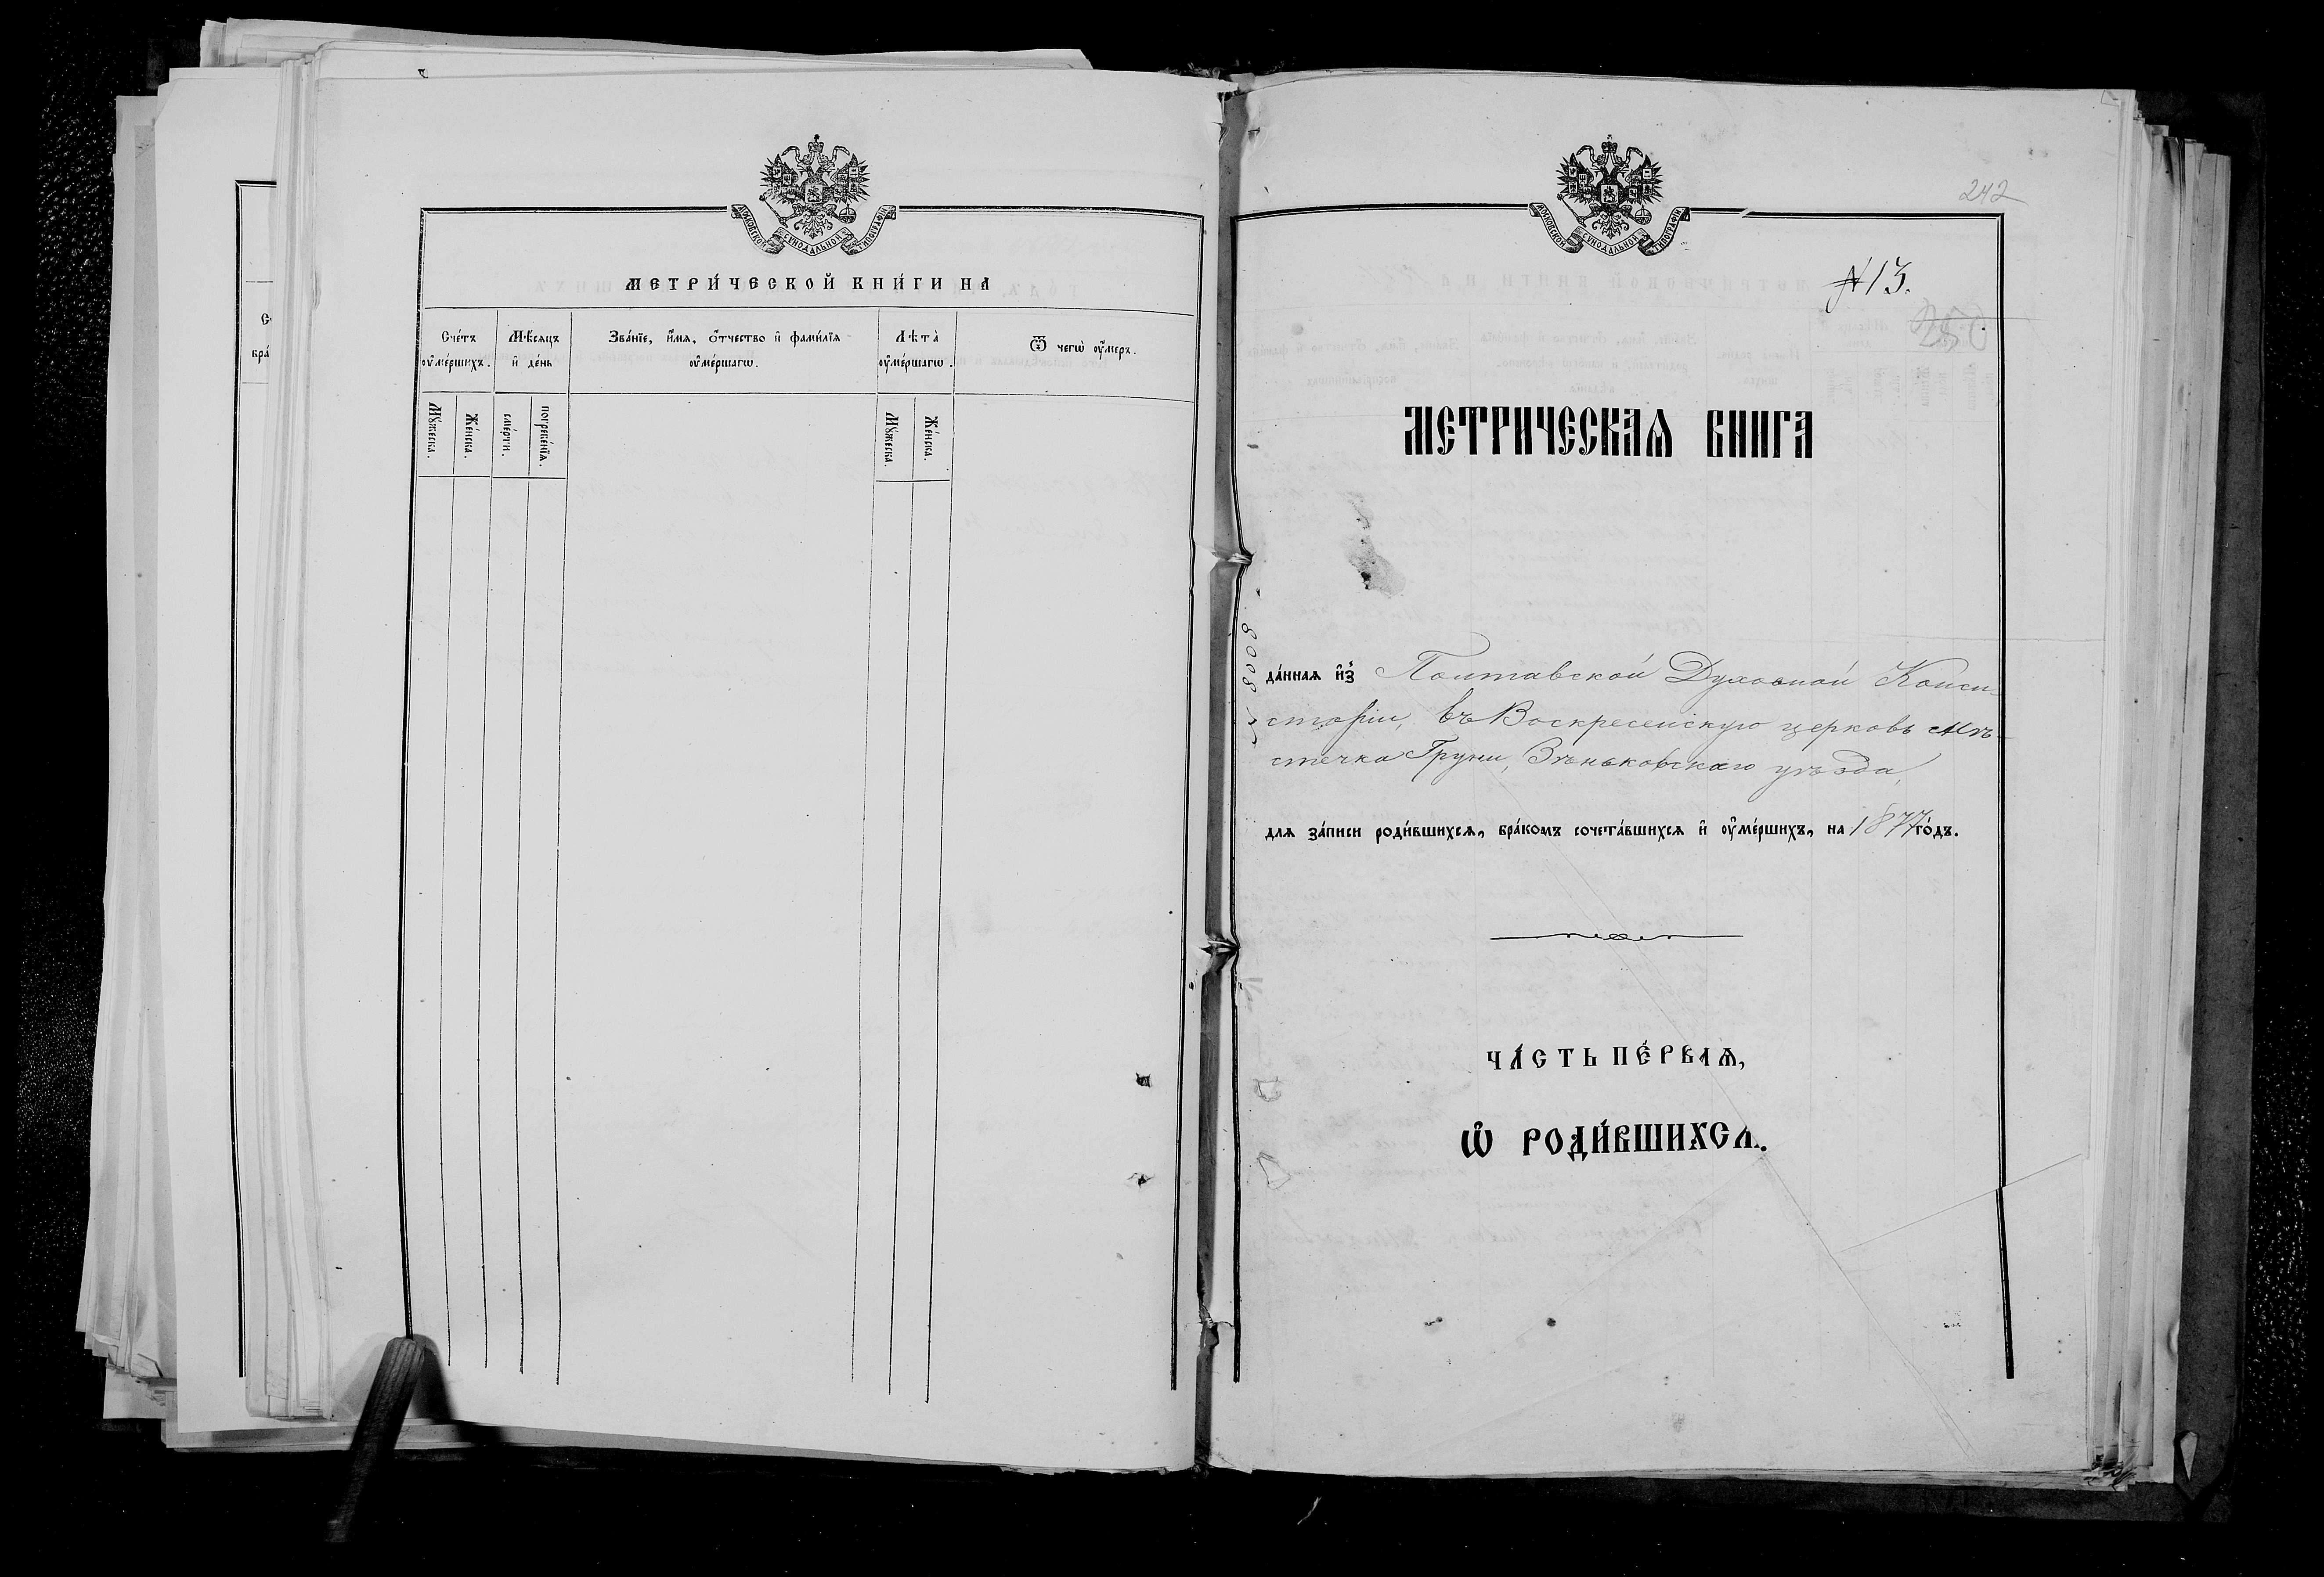 МОСКОВСКОЙ СѴНОДАЛЬНОЙ ТИПОГРАФІИ
МЕТРИ́ЧЕСКОЙ КНИ́ГИ НА
Сче́тъ оу҆ме́ршихъ.
Мѣ́сяцъ и҆ де́нь
Зва́нїе, и҆́мя, ѻ҆́тчество и҆ фами́лїя оу҆ме́ршагѡ.
Лѣта̀ оу҆ме́ршагѡ.
Ѿ чегѡ̀ оу҆́меръ.
Мꙋ́жеска.
Же́нска.
сме́рти.
погребе́нїѧ.
Мꙋ́жеска.
Же́нска.
бра́
МОСКОВСКОЙ СѴНОДАЛЬНОЙ ТИПОГРАФІИ
242
№ 13.
250
МЕТРИЧЕСКАѦ КНИГА
8008
да́ннаѧ и҆з̾ Полтавской Духовной Конси-
сторіи, въ Воскресенскую церковь мѣ-
стечка Груни, Зѣньковскаго уѣзда,
длѧ за́писи роди́вшихсѧ, бра́комъ сочета́вшихсѧ и҆ оу҆ме́ршихъ, на 1877 го́дъ.
ЧА́СТЬ ПЕ́РВАѦ,
Ѡ҆ РОДИ́ВШИХСѦ.